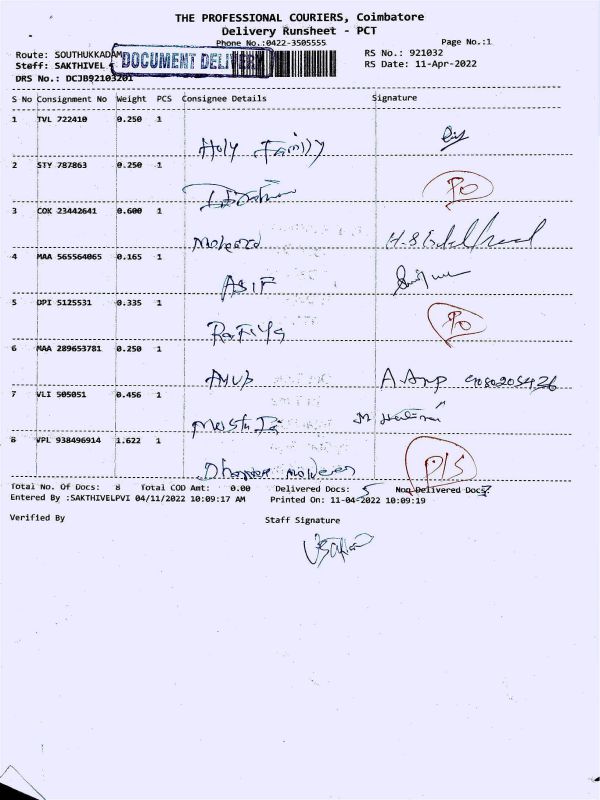 THE PROFESSIONAL COURIERS, Coimbatore
Delivery Runsheet - PCT
Phone No.:0422-3505555
Page No.:1
Route: SOUTHUKKADAM
RS No.: 921032
Staff: SAKTHIVEL
DOCUMENT DELIVERY
RS Date: 11-Apr-2022
DRS No.: DCJB92103201
S No Consignment No Weight PCS Consignee Details Signature
1 TVL 722410 0.250 1
Holy Family
2 STY 787863 0.250 1
P/O
3 COK 23442641 0.600 1
4 MAA 565564065 0.165 1
ASIF
5 DPI 5125531 0.335 1
Rafiya P/O
6 MAA 289653781 0.250 1
Ayub
7 VLI 505051 0.456 1
8 VPL 938496914 1.622 1
P/S
Total No. Of Docs: 8 Total COD Amt: 0.00 Delivered Docs: 5 Non Delivered Docs: 3
Entered By :SAKTHIVELPVI 04/11/2022 10:09:17 AM Printed On: 11-04-2022 10:09:19
Verified By Staff Signature